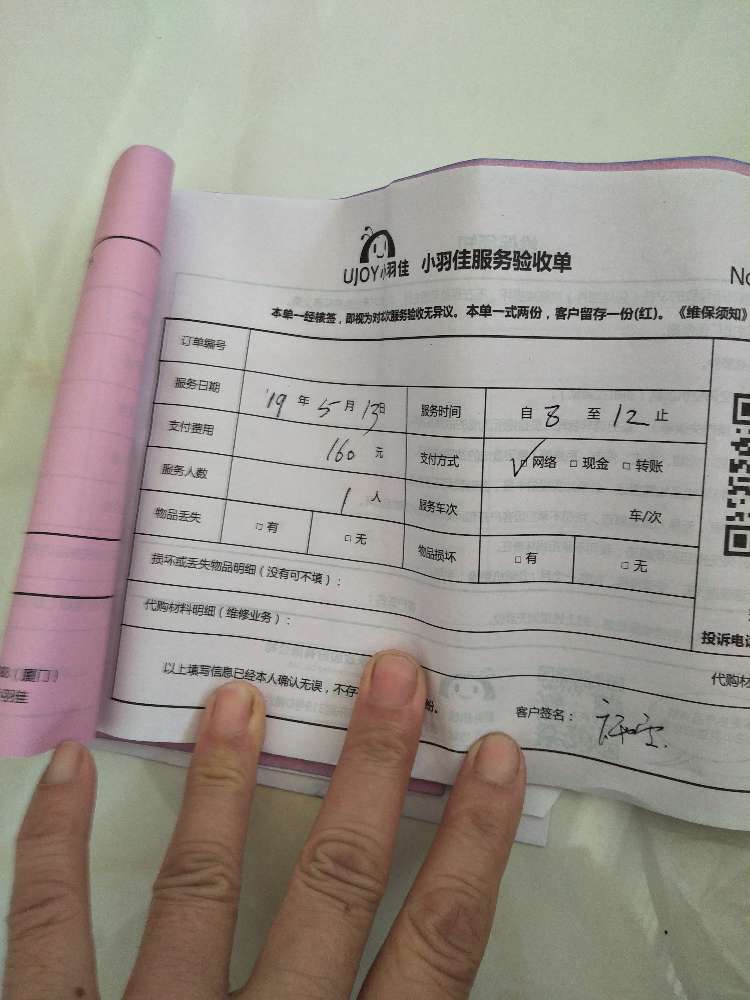 UJOY小羽佳 小羽佳服务验收单
No
本单一经接签，即视为对本次服务验收无异议。本单一式两份，客户留存一份(红)。《维保须知》
订单编号
服务日期 '19 年 5 月 13 日 服务时间 自 8 至 12 止
支付费用 160 元 支付方式 ✓□ 网络 □ 现金 □ 转账
服务人数 1 人 服务车次 车/次
物品丢失 □ 有 □ 无 物品损坏 □ 有 □ 无
损坏或丢失物品明细（没有可不填）：
代购材料明细（维修业务）：
投诉电话
代购材
以上填写信息已经本人确认无误，不存
客户签名：
（厦门）
羽佳